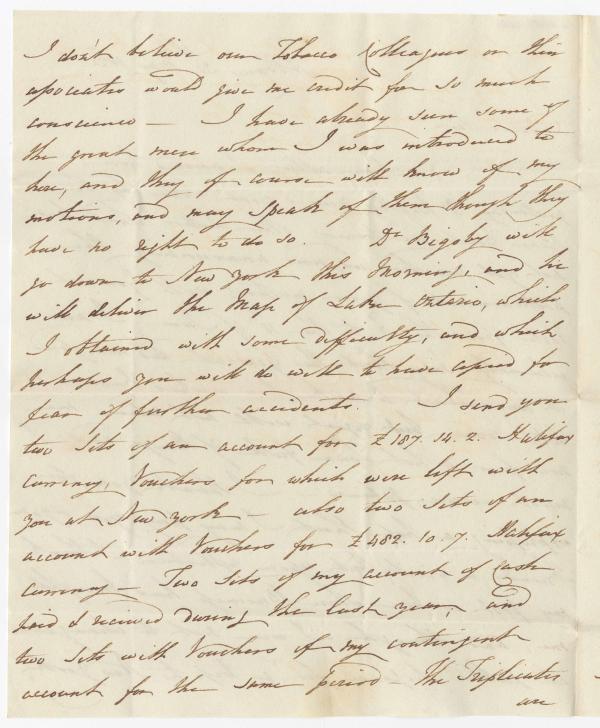 I don't believe our Tobacco Colleagues or their
associates would give me credit for so much
conscience — I have already seen some of
the great men whom I was introduced to
here, and they of course will know of my
motions, and may speak of them though they
have no right to do so. Dr Bigsby will
go down to New York this Morning, and he
will deliver the Map of Lake Ontario, which
I obtained with some difficulty, and which
perhaps you will do well to have copied for
fear of further accidents. I send you
two Sets of an account for £187. 14. 2. Halifax
Currency, Vouchers for which were left with
you at New York — also two Sets of an
account with Vouchers for £482. 10. 7. Halifax
Currency — Two Sets of my account of Cash
paid & recieved during the last year; and
two Sets with Vouchers of my contingent
account for the same period — the Triplicates
are